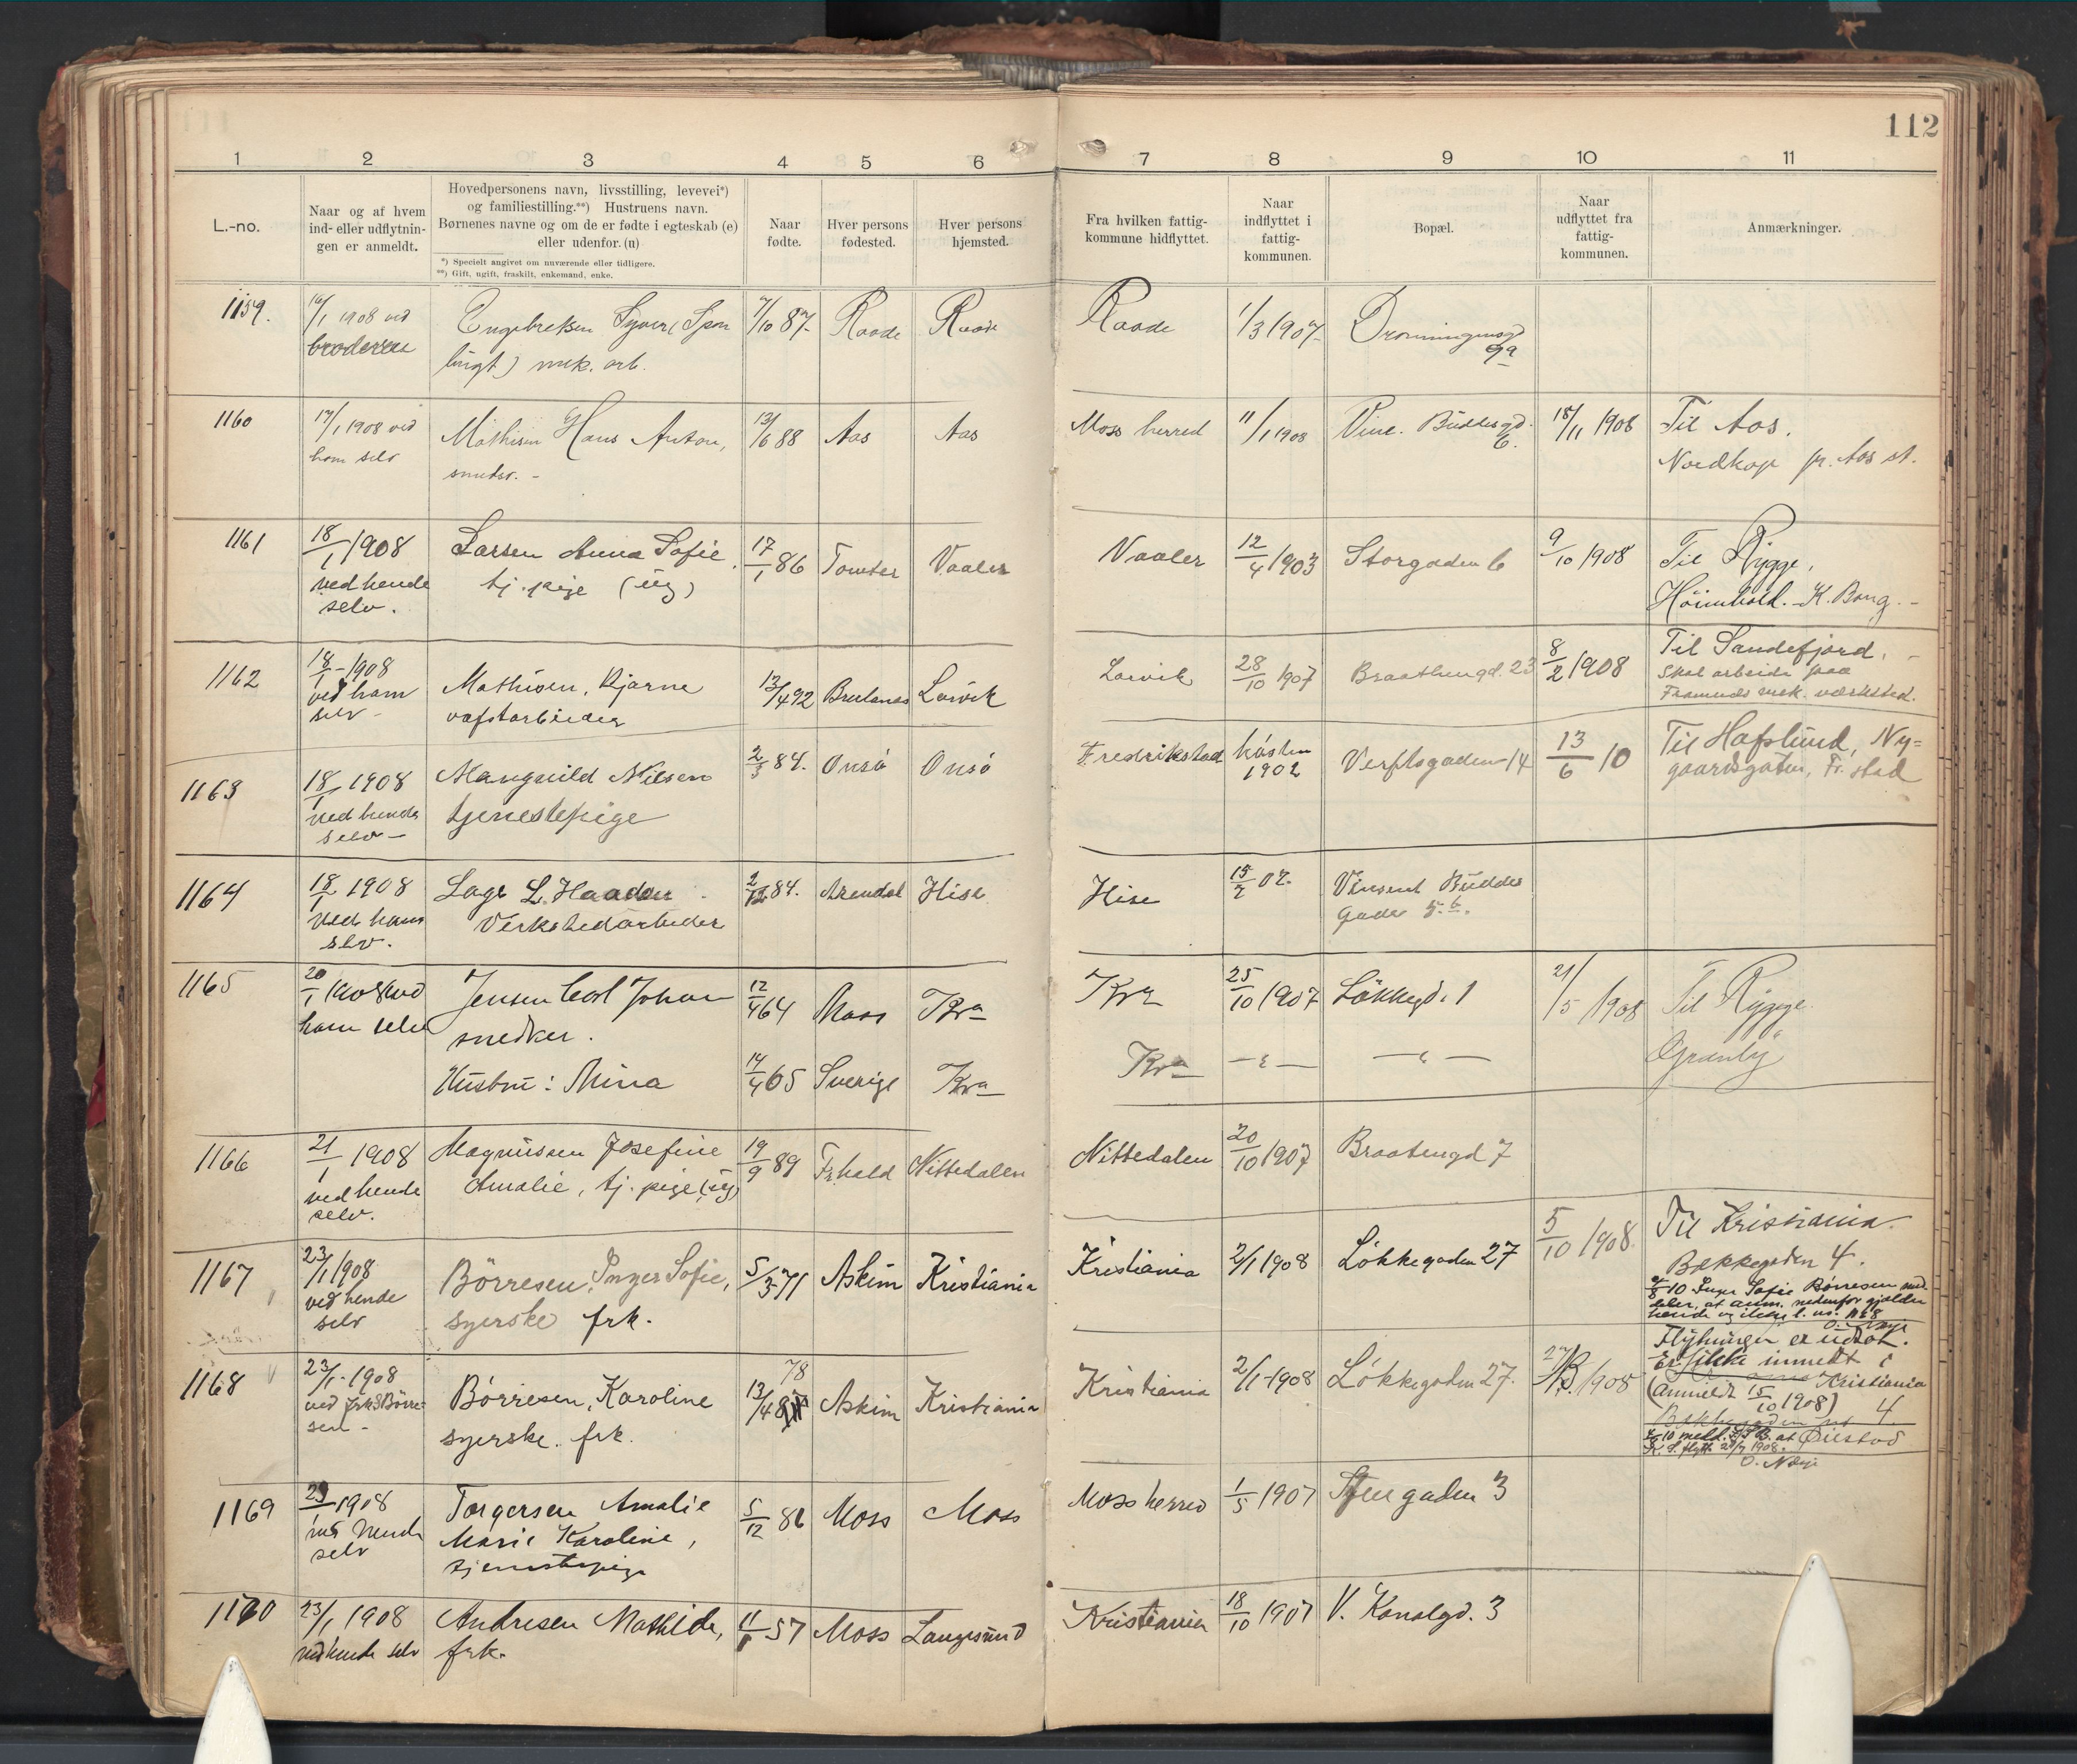 112
1 2 3 4 5 6 7 8 9 10 11
L.-no.
Naar og af hvem
ind- eller udflytnin-
gen er anmeldt.
Hovedpersonens navn, livsstilling, levevei*)
og familiestilling.**) Hustruens navn.
Børnenes navne og om de er fødte i egteskab (e)
eller udenfor. (u)
*) Specielt angivet om nuværende eller tidligere.
**) Gift, ugift, fraskilt, enkemand, enke.
Naar
fødte.
Hver persons
fødested.
Hver persons
hjemsted.
Fra hvilken fattig-
kommune hidflyttet.
Naar
indflyttet i
fattig-
kommunen.
Bopæl.
Naar
udflyttet fra
fattig-
kommunen.
Anmærkninger.
1159. 16/1 1908 ved Engebretsen Syver 7/10 87 Raade Raade Raade 1/3 1907 Dronningensgd
broderen mek. arb. 9a
1160 17/1 1908 ved Mathisen Hans Anton, 13/6 88 Aas Aas Moss herred 11/1 1908 Vinc. Buddesgd. 18/11 1908 Til Aas.
ham selv 6. Nordkap pr. Aas st.
1161 18/1 1908 Larsen Anna Sofie, 17/1 86 Tomter Vaaler Vaaler 12/4 1903 Storgaden 6 9/10 1908 Til Rygge,
ved hende tj. pige (ug) K. Bang.
selv.
1162 18/1 - 1908 Mathisen, Bjarne 13/4 92 Larvik Larvik 28/10 1907 Braathengd. 23 8/2 1908 Til Sandefjord.
ved ham Skal arbeide paa
selv - Framnæs mek. værksted.
1163 18/1 1908 Nilsen 2/3 84. Onsö Onsö Fredrikstad hösten Verftsgaden 14 13/6 10 Til Hafslund, Ny=
ved hende tjenestepige 1902 gaardsgaten, Fr.stad
selv -
1164 18/1 1908 Lage L. 84. Arendal Hise Hise 15/2 07. Vinsent Buddes
ved ham Verkstedarbeider Gade 5.
selv.
1165 20/1 1908 ved Jensen Carl Johan 12/4 64 Moss Kra Kra 25/10 1907 Lökkegd. 1 21/5 1908 Til Rygge
ham selv snedker. Granly
Hustru: Mina 14/4 65 Sverige Kra Kra
1166 21/1 1908 Magnussen Josefine 19/9 89 Fr.hald Nittedalen Nittedalen 20/10 1907 Braatengd 7
ved hende Amalie, tj. pige (ug)
selv.
1167 23/1 1908 Börresen, Inger Sofie, 5/3 71 Askim Kristiania Kristiania 2/1 1908 Lökkegaden 27 5/10 1908. Til Kristiania.
ved hende syerske frk. Bakkegaden 4.
selv Inger Sofie Börresen med
deler, at anm. nedenfor gjælder
hende og ikke l. no. 1168
1168 23/1 - 1908 Börresen, Karoline 78 13/4 Askim Kristiania Kristiania 2/1 - 1908 Lökkegaden 27. 1908 Flytningen er udsat.
syerske. frk. Er ikke inmeldt i
Kristiania
(anmeldt 15/10 1908)
Bakkegaden no 4.
1169 23/1 1908 Torgersen Amalie 5/12 86 Moss Moss Moss herred 1/5 1907 gaden 3
ved hende Marie Karoline,
selv tjenestepige
1170 23/1 1908 Andresen Mathilde, 57 Moss Langesund Kristiania 18/10 1907 V. Kanalgd. 3
ved hende selv frk.